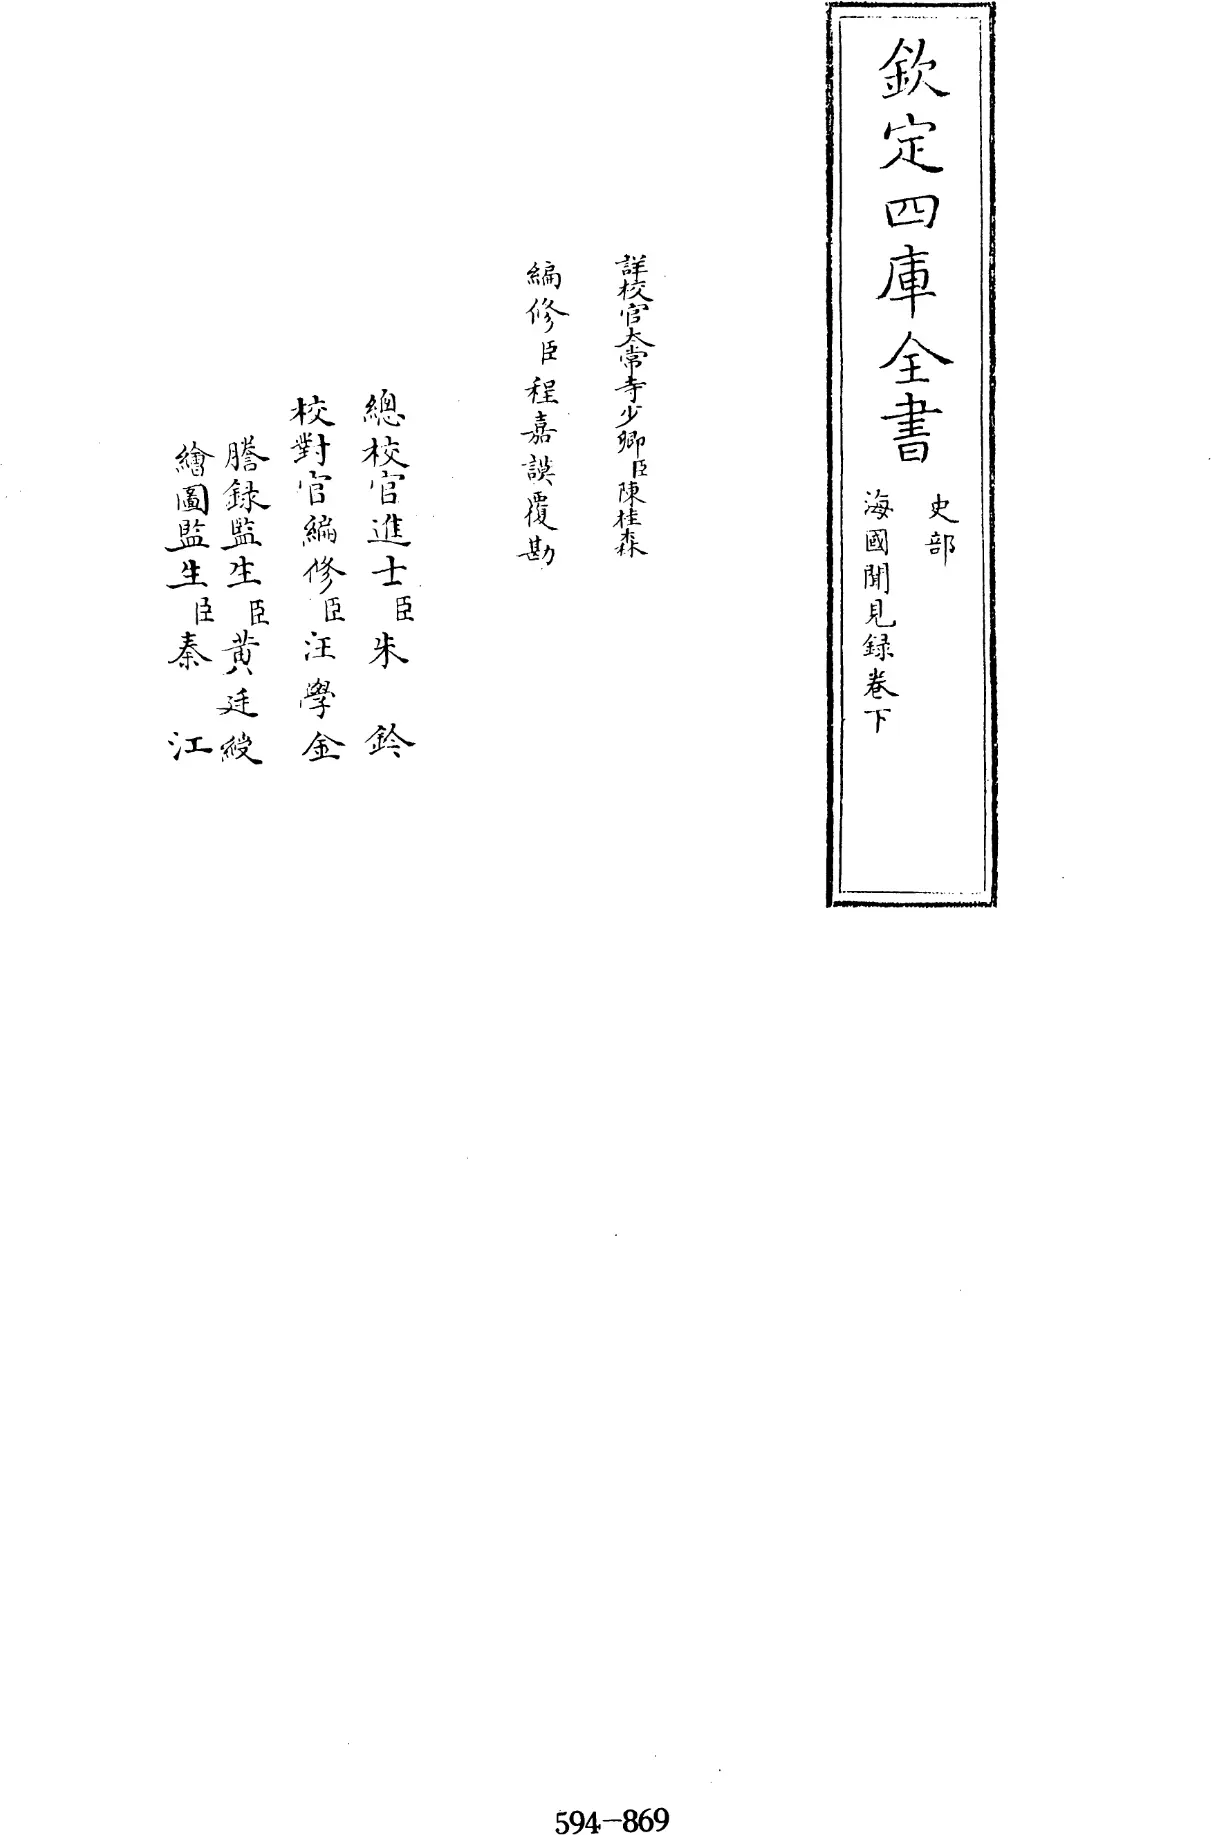 欽定四庫全書
史部
海國聞見録卷下
詳校官太常寺少卿臣陳桂森
編修臣程嘉謨覆勘
總校官進士臣朱鈐
校對官編修臣汪學金
謄録監生臣黄廷綬
繪圖監生臣秦江
594-869